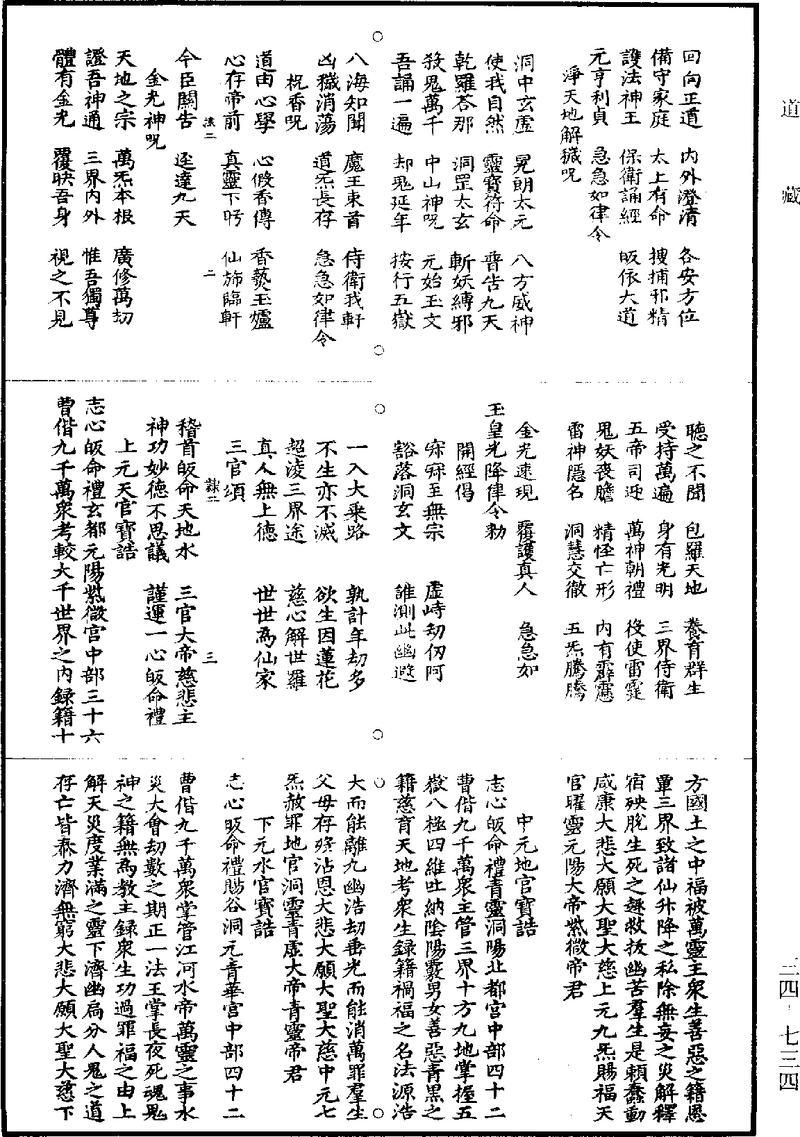 道藏
回向正道　內外澄清　各安方位
備守家庭　太上有命　搜捕邪精
護法神王　保衛誦經　皈依大道
元亨利貞　急急如律令
淨天地解穢呪
洞中玄虛　晃朗太元　八方威神
使我自然　靈寶符命　普告九天
乾羅荅那　洞罡太玄　斬妖縛邪
殺鬼萬千　中山神呪　元始玉文
吾誦一遍　却鬼延年　按行五嶽
八海知聞　魔王束首　侍衛我軒
凶穢消蕩　道炁長存　急急如律令
祝香呪
道由心學　心假香傳　香爇玉爐
心存帝前　真靈下盻　仙旆臨軒
今臣關告　逕達九天
金光神呪
天地之宗　萬炁本根　廣修萬劫
證吾神通　三界內外　惟吾獨尊
體有金光　覆映吾身　視之不見
聽之不聞　包羅天地　養育群生
受持萬遍　身有光明　三界侍衛
五帝司迎　萬神朝禮　役使雷霆
鬼妖喪膽　精怪亡形　內有霹靂
雷神隱名　洞慧交徹　五炁騰騰
金光速現　覆護真人　急急如
玉皇光降律令勑
開經偈
寂寂至無宗　虛峙劫仞阿
豁落洞玄文　誰測此幽遐
一入大乘路　孰計年劫多
不生亦不滅　欲生因蓮花
超淩三界途　慈心解世羅
真人無上德　世世為仙家
三官頌
稽首皈命天地水　三官大帝慈悲主
神功妙德不思議　謹運一心皈命禮
上元天官寶誥
志心皈命禮玄都元陽紫微宮中部三十六
曹偕九千萬眾考較大千世界之內録籍十
方國土之中福被萬靈主眾生善惡之籍恩
覃三界致諸仙升降之私除無妄之災解釋
宿殃脫生死之趣救拔幽苦羣生是賴蠢動
咸康大悲大願大聖大慈上元九炁賜福天
官曜靈元陽大帝紫微帝君
中元地官寶誥
志心皈命禮青靈洞陽北都宮中部四十二
曹偕九千萬眾主管三界十方九地掌握五
嶽八極四維吐納陰陽覈男女善惡青黑之
籍慈育天地考眾生録籍禍福之名法源浩
大而能離九幽浩劫垂光而能消萬罪羣生
父母存歿沾恩大悲大願大聖大慈中元七
炁赦罪地官洞靈青虛大帝青靈帝君
下元水官寶誥
志心皈命禮暘谷洞元青華宮中部四十二
曹偕九千萬眾掌管江河水帝萬靈之事水
災大會劫數之期正一法王掌長夜死魂鬼
神之籍無為教主録眾生功過罪福之由上
解天災度業滿之靈下濟幽扃分人鬼之道
存亡皆泰力濟無窮大悲大願大聖大慈下
三四-七三四